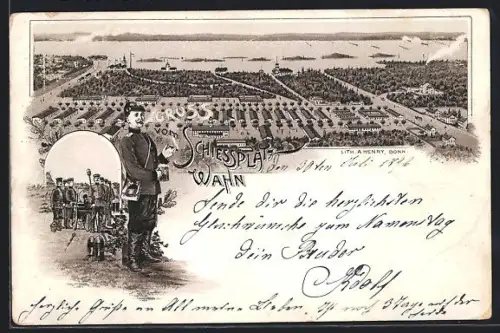 GRUSS
VOM
SCHIESSPLATZ
WAHN
LITH. A. HENRY, BONN.
den 30ten Juli 189
Sende dir die herzlichsten
Glückwünsche zum Namenstag
dein Bruder
Adolf
herzliche Grüße an All meine Lieben. Ist noch 3 Tage auf der
Heide